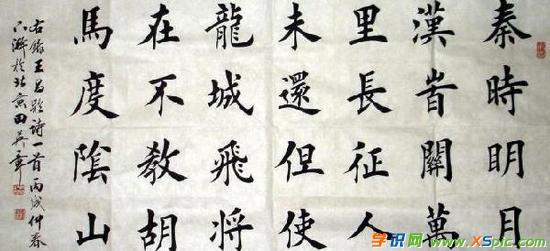 秦時眀月
漢旹關萬
里長征人
未還但使
龍城飛將
在不教胡
馬度陰山
右錄王昌齡詩一首丙戌仲春
下澣於北京田英章
学识网 www.XSpic.com